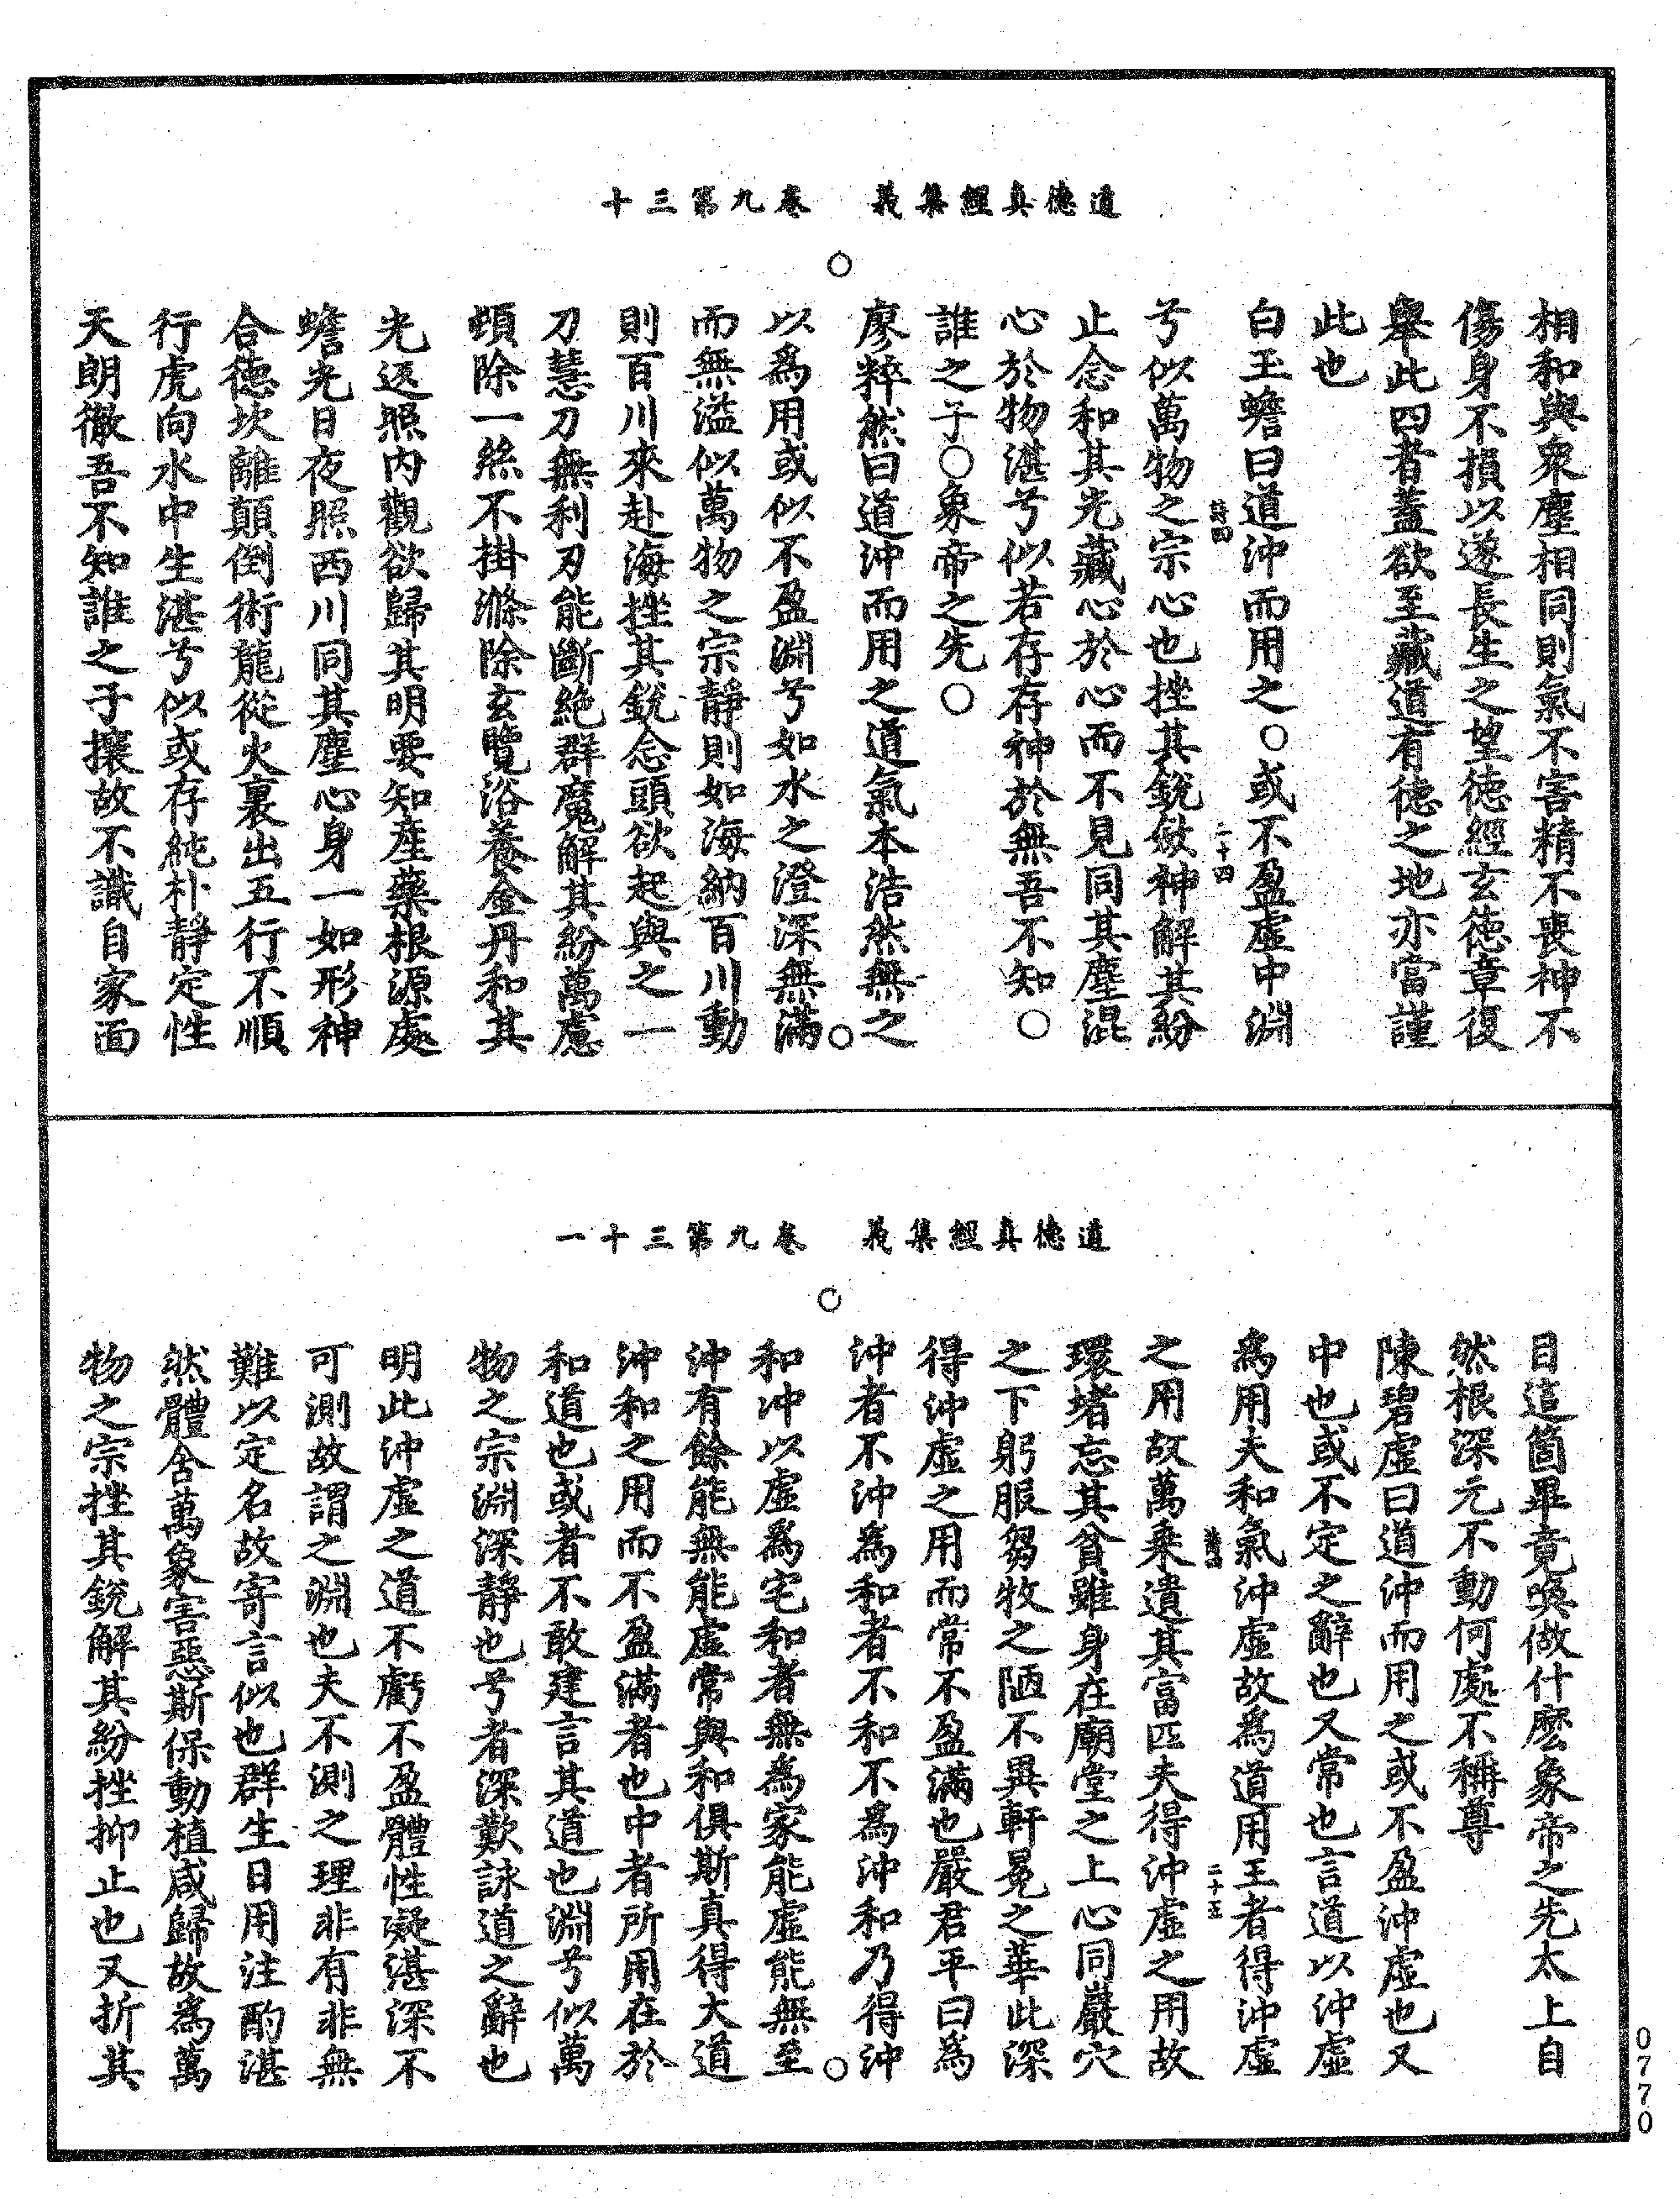 道德真經集義　卷九第三十
相和與衆塵相同則氣不害精不喪神不
傷身不損以遂長生之望德經玄德章復
舉此四者蓋欲至藏道有德之地亦當謹
此也
白玉蟾曰道沖而用之○或不盈虛中淵
二十四
兮似萬物之宗心也挫其銳斂神解其紛
止念和其光藏心於心而不見同其塵混
心於物湛兮似若存存神於無吾不知○
誰之子○象帝之先○
廖粹然曰道沖而用之道氣本浩然無之
以爲用或似不盈淵兮如水之澄深無滿
而無溢似萬物之宗靜則如海納百川動
則百川來赴海挫其銳念頭欲起與之一
刀慧刀無利刃能斷絶群魔解其紛萬慮
頓除一絲不掛滌除玄覽浴養金丹和其
光返照內觀欲歸其明要知產藥根源處
蟾光日夜照西川同其塵心身一如形神
合德坎離顛倒術龍從火裏出五行不順
行虎向水中生湛兮似或存純朴靜定性
天朗徹吾不知誰之子攘故不識自家面
道德真經集義　卷九第三十一
目這箇畢竟喚做什麽象帝之先太上自
然根深元不動何處不稱尊
陳碧虛曰道沖而用之或不盈沖虛也又
中也或不定之辭也又常也言道以沖虛
爲用夫和氣沖虛故爲道用王者得沖虛
二十五
之用故萬乘遺其富匹夫得沖虛之用故
環堵忘其貧雖身在廟堂之上心同巖穴
之下躬服芻牧之陋不異軒冕之華此深
得沖虛之用而常不盈滿也嚴君平曰爲
沖者不沖爲和者不和不爲沖和乃得沖
和沖以虛爲宅和者無爲家能虛能無至
沖有餘能無能虛常與和俱斯真得大道
沖和之用而不盈滿者也中者所用在於
和道也或者不敢建言其道也淵兮似萬
物之宗淵深靜也兮者深歎詠道之辭也
明此沖虛之道不虧不盈體性凝湛深不
可測故謂之淵也夫不測之理非有非無
難以定名故寄言似也群生日用注酌湛
然體含萬象害惡斯保動植咸歸故爲萬
物之宗挫其銳解其紛挫抑止也又折其
0770